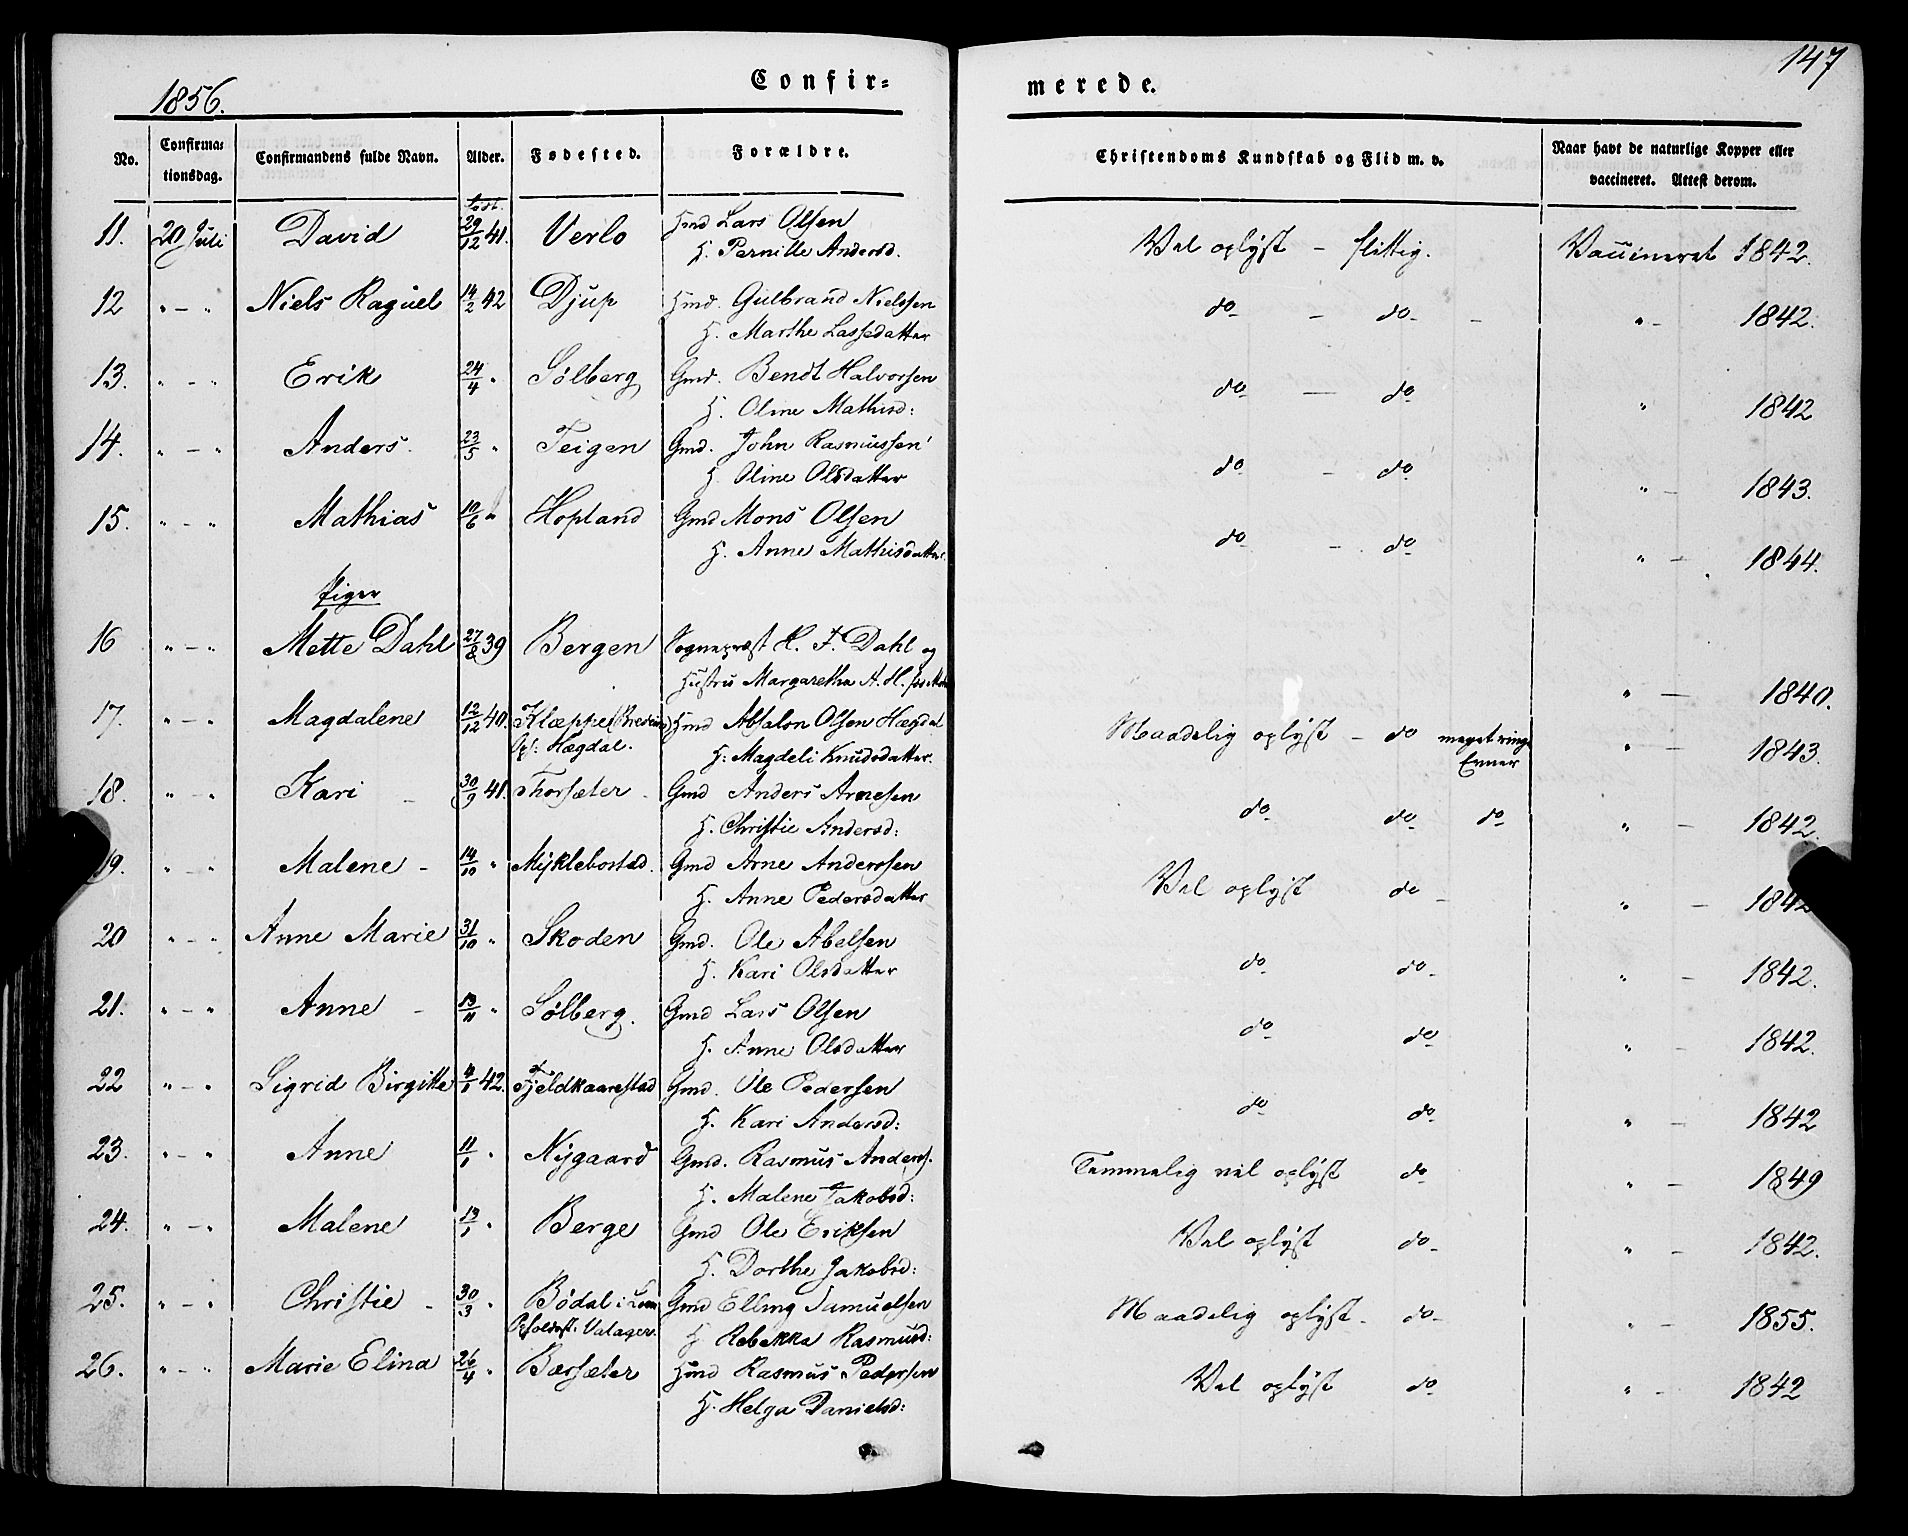 147
1856.
Confir=
merede.
No. Confirma=tionsdag. Confirmandens fulde Navn. Alder. Fødested. Forældre. Christendoms Kundskab og Flid m. v. Naar havt de naturlige Kopper eller vaccineret. Attest derom.
11. 20 Juli David 29/12 41. Verlo Hmd Lars Olsen Vel oplyst – flittig. Vaccineret 1842.
H. Pernille Andersd.
12 " – " Niels Raguel 14/2 42 Djup Hmd. Gulbrand Nielssen do – do – " – 1842.
H. Marthe Lassedatter
13. " – " Erik 24/4 " Sølberg Gmd. Bendt Halvorsen do — do " 1842
H. Oline Mathisd:
14. " – " Anders. 23/5 " Teigen Gmd. John Rasmussen do – do " – 1843.
H. Oline Olsdatter
15. " – " Mathias 10/6 " Hopland Gmd Mons Olsen do – do " – 1844.
H. Anne Mathisdatter.
Piger
16 " – " Mette Dahl 27/8 39 Bergen Sognepræst H. F. Dahl og " – 1840.
Hustru Margaretha A. H.
17. " – " Magdalene 12/12 40. Klæppe Hmd Absalon Olsen Hægdal Maadelig oplyst – do meget ringe Evner " – 1843.
Opf: Hægdal. H: Magdeli Knudsdatter.
18. " – " Kari – 30/9 41. Thorsæter – Gmd Anders Arnesen do do do " – 1842.
H. Christie Andersd:
19. " – " Malene – 14/10 " Myklebostad. Gmd Arne Anderssen Vel oplyst do – " – 1842
H. Anne Pedersdatter
20 " – " Anne Marie 31/10 " Skoden Gmd. Ole Abelsen do do " – 1842.
H. Kari Olsdatter
21. " – " Anne – 13/11 " Sølberg. Gmd Lars Olsen do do " – 1842.
H. Anne Olsdatter
22 " – " Sigrid Birgitte 4/1 42. Fjeldkaarestad Gmd. Ole Pedersen do do " – 1842
H. Kari Andersd:
23. " – " Anne 11/1 " Nygaard Gmd. Rasmus Anders. Temmelig vel oplyst do " – 1849
H. Malene Jakobsd:
24. " – " Malene 13/1 " Berge Gmd Ole Eriksen Vel oplyst do " – 1842.
H. Dorthe Jakobsd:
25. " – " Christie – 30/3 " Bødal i Gmd Elling Samuelsen Maadelig oplyst – do " – 1855.
Opholdsst: H Rebekka Rasmusd:
26. " – " Marie Elina 26/4 " Bærsæter Hmd Rasmus Pedersen Vel oplyst do " – 1842
H. Helga Danielsd: